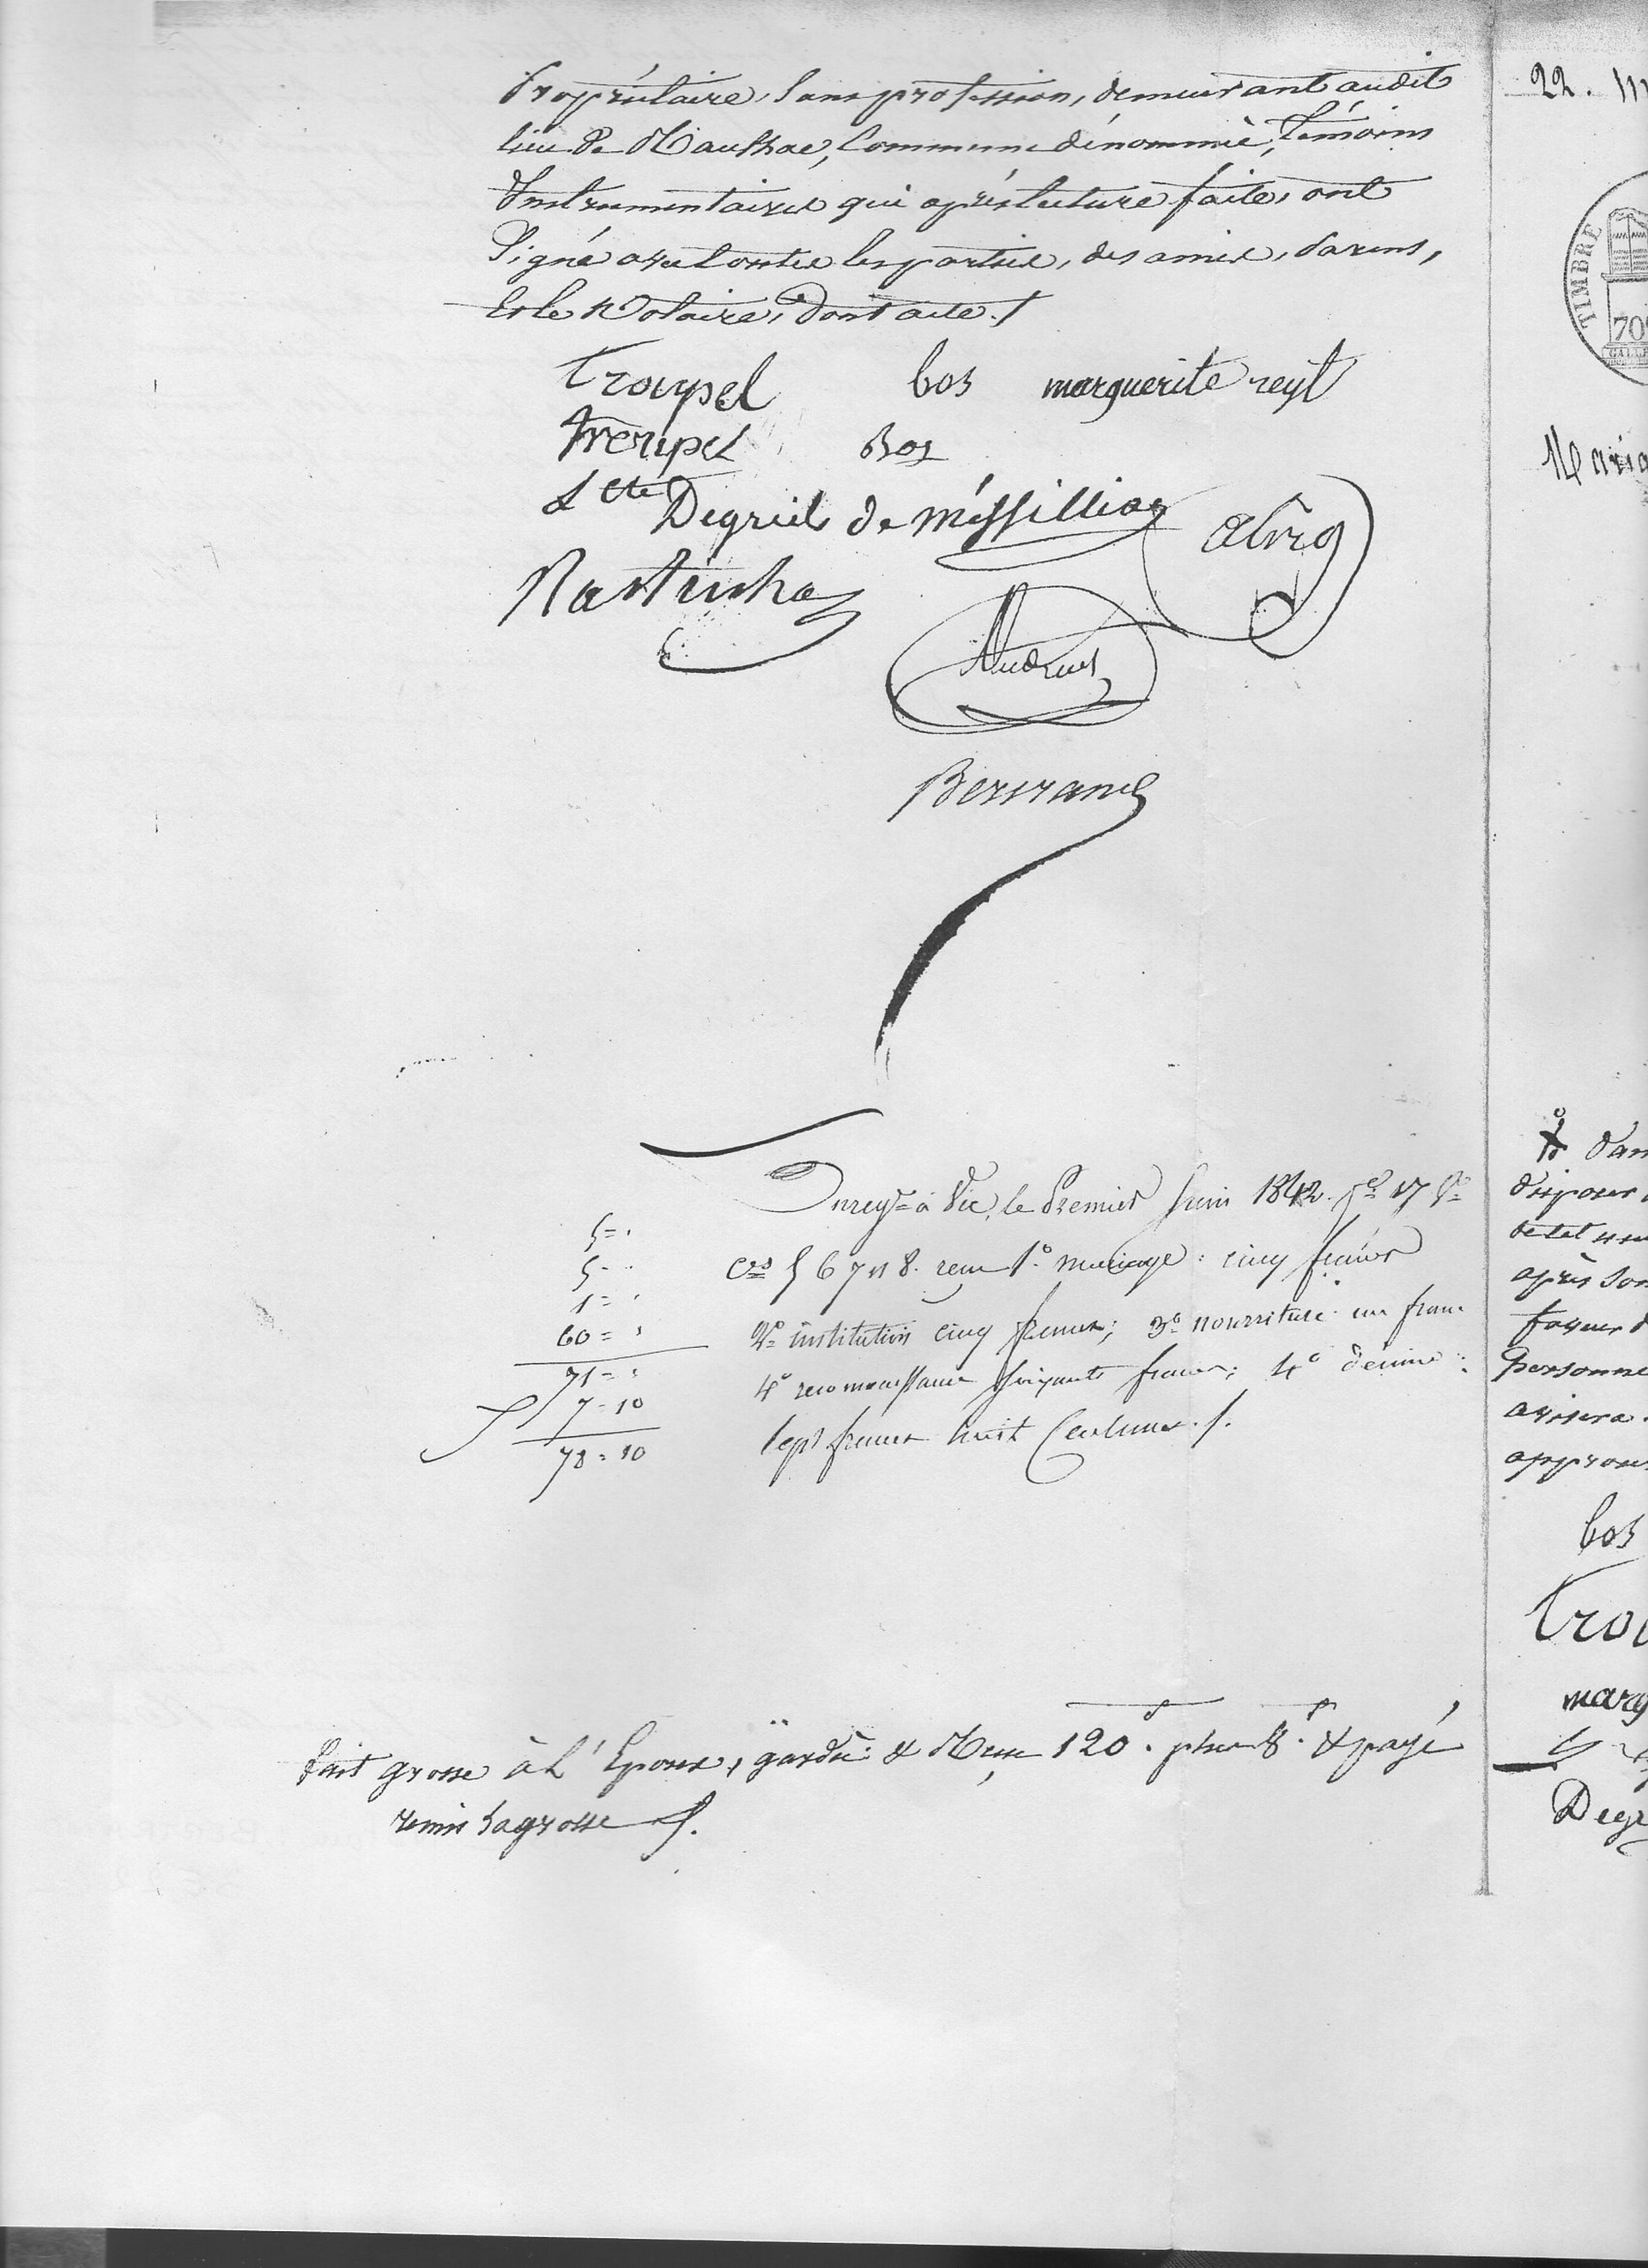 propriétaire, sans profession, demeurant audit
lieu de commune dénommé, témoins
Instrumentaires qui après lecture faite, ont
Signé avec toutes les parties, des amis, parens,
Et le Notaire, Dont acte ./
Troupel bos marguerite reyt
Troupel Bos
Degriel de Messilliac
Alric
Mastinhac
Bertrand
Enregtré à Vic, le Premier Juin 1842. fo 17 Vo
Ces 5 6 7 et 8. reçu 1o mariage : cinq francs
2o institution cinq francs; 3o nourriture un franc
4o reconnaissance soixante francs; 4o décime :
sept francs huit Centimes ./.
5 = "
5 = "
1 = "
60 = "
71 = "
7 = 10
78 = 10
fait grosse à l'Epoux, gardé & 120. & payé
remis la grosse /.
22. M
TIMBRE
70
Maria
d'un
disposer
après son
faveur d
personne
avisera.
approuv
bos
Trou
marg
Degr